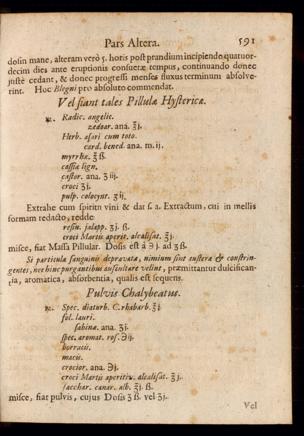 Pars Altera. 591
dosin mane, alteram verò 5. horis post prandium incipiendo quatuor-
decim dies ante eruptionis consuetæ tempus, continuando donec
justè cedant, & donec progressi menses fluxus terminum absolve-
rint. Hoc Blegni pro absoluto commendat.
Vel fiant tales Pillulæ Hystericæ.
℞. Radic. angelic.
zedoar. ana. ʒj.
Herb. asari cum toto.
card. bened. ana. m. ij.
myrrhæ. ʒ ß.
cassiæ lign.
castor. ana. ʒ iij.
croci ʒj.
pulp. colocynt. ʒ ij.
Extrahe cum spiritu vini & dat s. a. Extractum, cui in mellis
formam redacto, redde
resin. jalapp. ʒj. ß.
croci Martis aperit. alcalisat. ʒj.
misce, fiat Massa Pillular. Dosis est à ℈ j. ad ʒ ß.
Si particula sanguinis depravatæ, nimium sint austeræ & constrin-
gentes, nec hinc purgantibus auscultare velint, præmittantur dulcifican-
tia, aromatica, absorbentia, qualis est sequens.
Pulvis Chalybeatus.
℞. Spec. diaturb. C. rhabarb. ʒj
fol. lauri.
sabinæ. ana. ʒj.
spec. aromat. ros. ℈ij.
borracis.
macis.
crocior. ana. ℈j.
croci Martis aperitiv. alcalisat. ʒj.
sacchar. canar. alb. ℥j. ß.
misce, fiat pulvis, cujus Dosis ʒ ß. vel ʒj.
Vel